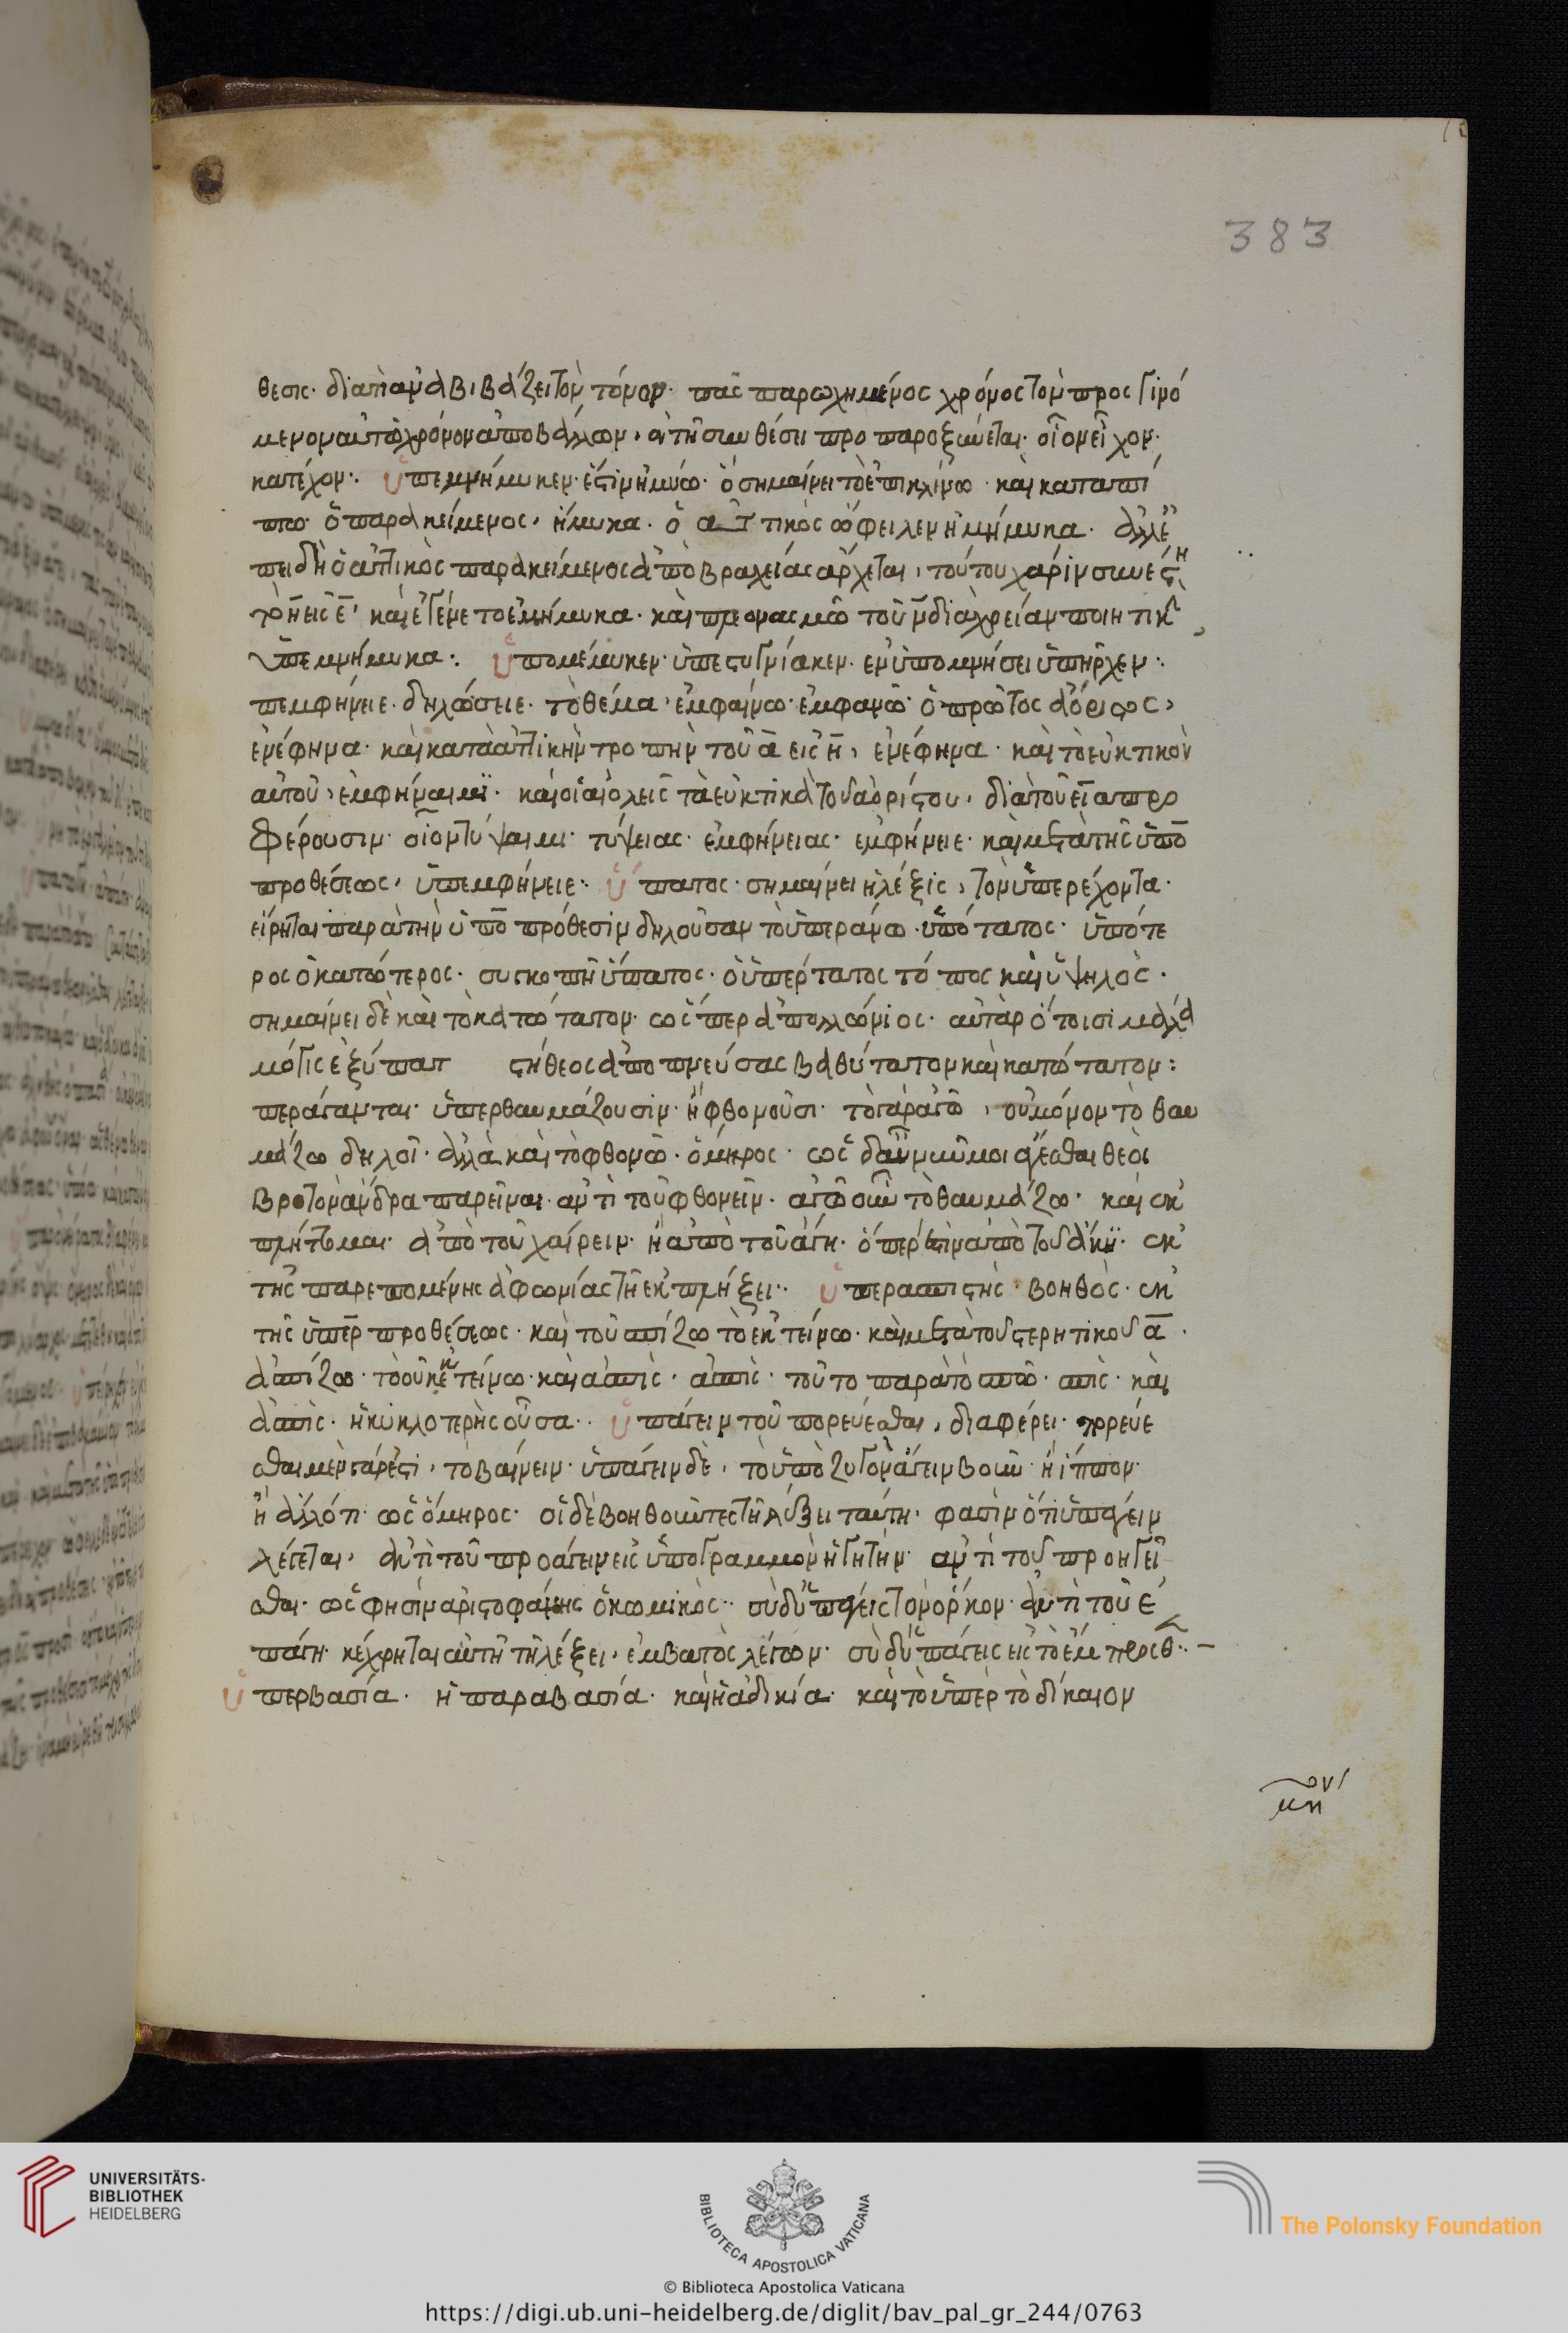 383
θεσις· διατί ἀναβιβάζει τὸν τόνον· πᾶς παρωχημένος χρόνος τὸν προσγινό
μενον αὐτῶ χρόνον ἀποβάλλων, ἐν τῆ συνθέσει προπαροξύνεται· οἷον εἶχον·
κατέχον·. ὑπεμνήμυκεν· ἔστιν ἠμύω· ὃ σημαίνει τὸ ἐπικλίνω· καὶ καταπί
πτω· ὁ παρακείμενος, ἤμυκα· ὁ ἀττικὸς ὤφειλεν ἠμήμυκα· ἀλλ' ἐ
πειδὴ ὁ ἀττικὸς παρακείμενος ἀπὸ βραχείας ἄρχεται, τούτου χάριν συνέστη
τὸ η εἰς ε· καὶ ἐγένετο ἐμήμυκα· καὶ πλεονασμῶ τοῦ ν διὰ χρείαν ποιητικ
ὑπεμνήμυκα·. ὑπομέμυκεν· ὑπεστυγνίακεν· ἐν ὑπομνήσει ὑπῆρχεν·.
πεμφήνειε· δηλώσειε· τὸ θέμα, ἐμφαίνω· ἐμφανῶ· ὁ πρῶτος ἀόριστος,
ἐνέφηνα· καὶ κατὰ ἀττικὴν τροπὴν τοῦ α εἰς η, ἐνέφηνα· καὶ τὸ εὐκτικὸν
αὐτοῦ, ἐμφήναιμι· καὶ οἱ αἰολεῖς τὰ εὐκτικὰ τοῦ ἀορίστου, διὰ τοῦ ει α προ
φέρουσιν· οἷον τύψαιμι· τύψειας· ἐμφήνειας· ἐμφήνειε· καὶ μετὰ τῆς ὑπὸ
προθέσεως, ὑπεμφήνειε·. ὕπατος· σημαίνει ἡ λέξις, τὸν ὑπερέχοντα·
εἴρηται παρὰ τὴν ὑπὸ πρόθεσιν δηλοῦσαν τὸ ὑπεράνω· ὑπότατος· ὑπότε
ρος ὁ κατώτερος· συγκοπῆ ὕπατος· ὁ ὑπέρτατος τόπος καὶ ὑψηλός·
σημαίνει δὲ καὶ τὸ κατώτατον· ὥσπερ ἀπολλώνιος· αὐτὰρ ὅ τοισι μάλα
μόγις ἐξ ὑπατ στήθεος ἀποπνεύσας βαθύτατον καὶ κατώτατον:
περάγανται· ὑπερθαυμάζουσιν· ἢ φθονοῦσι· τὸ γὰρ ἀγῶ, οὐ μόνον τὸ θαυ
μάζω δηλοῖ· ἀλλὰ καὶ τὸ φθονῶ· ὅμηρος· ὣς δ' αὖ νῦν μοι ἄγεσθαι θεοὶ
βροτὸν ἄνδρα παρεῖναι· ἀντὶ τοῦ φθονεῖν· ἀγῶ οὖν τὸ θαυμάζω· καὶ ἐκ
πλήττομαι· ἀπὸ τοῦ χαίρειν· ἢ ἀπὸ τοῦ ἄγη· ὅπερ ἐστὶν ἀπὸ τοῦ ἀκη· ἐκ
τῆς παρεπομένης ἀφωνίας τῆ ἐκπλήξει·. ὑπερασπιστής· βοηθός· ἐκ
τῆς ὑπὲρ προθέσεως· καὶ τοῦ σπίζω τὸ ἐκτείνω· καὶ μετὰ τοῦ στερητικοῦ α·
ἀσπίζω· τὸ οὐκ ἐκτείνω· καὶ ἀσπίς· ἀσπίς· τοῦτο παρὰ τὸ σπῶ· σπίς· καὶ
ἀσπίς· ἡ κυκλοτερὴς οὖσα·. ὑπάγειν τοῦ πορεύεσθαι, διαφέρει· πορεύε
σθαι μὲν γάρ ἐστι, τὸ βαίνειν· ὑπάγειν δὲ, τὸ ὑπὸ ζυγὸν ἄγειν βοῦν ἢ ἵππον·
ἢ ἄλλό τι· ὡς ὅμηρος· οἱ δὲ βοηθοῦντες τῆ λέξει ταύτη· φασὶν ὅτι ὑπάγειν
λέγεται, ἀντὶ τοῦ προάγειν εἰς ὑπογραμμὸν ἡγητὴν· ἀντὶ τοῦ προηγεῖ
σθαι· ὥς φησιν ἀριστοφάνης ὁ κωμικός·. σὺ δ' ὑπάγεις τὸν ὅρκον· ἀντὶ τοῦ ἐ
πάγη· κέχρηται αὐτῆ τῆ λέξει, ἐμβατὸς λέγων· σὺ δ' ὑπάγεις εἰς τὸ ἔμπροσθ·. –
ὑπερβασία· ἡ παραβασία· καὶ ἡ ἀδικία· καὶ τὸ ὑπὲρ τὸ δίκαιον
UNIVERSITÄTS-
BIBLIOTHEK
HEIDELBERG
BIBLIOTECA APOSTOLICA VATICANA
The Polonsky Foundation
© Biblioteca Apostolica Vaticana
https://digi.ub.uni-heidelberg.de/diglit/bav_pal_gr_244/0763